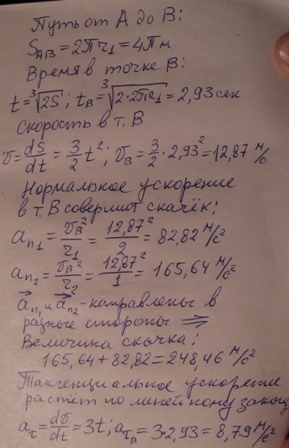 Путь от А до В:
S_AB = 2πr₁ = 4π м
Время в точке В:
t = ∛2S; t_B = ∛2·2πr₁ = 2,93 сек
Скорость в т. В
v = dS/dt = 3/2 t²; v_B = 3/2 · 2,93² = 12,87 м/с
Нормальное ускорение
в т. В совершит скачёк:
a_n₁ = v_B²/r₁ = 12,87²/2 = 82,82 м/с²
a_n₂ = v_B²/r₂ = 12,87²/1 = 165,64 м/с²
a_n₁ и a_n₂ - направлены в
разные стороны ⇒
Величина скачка:
165,64 + 82,82 = 248,46 м/с²
Тангенциальное ускорение
растёт по линейному закону
a_τ = dv/dt = 3t; a_τB = 3·2,93 = 8,79 м/с²